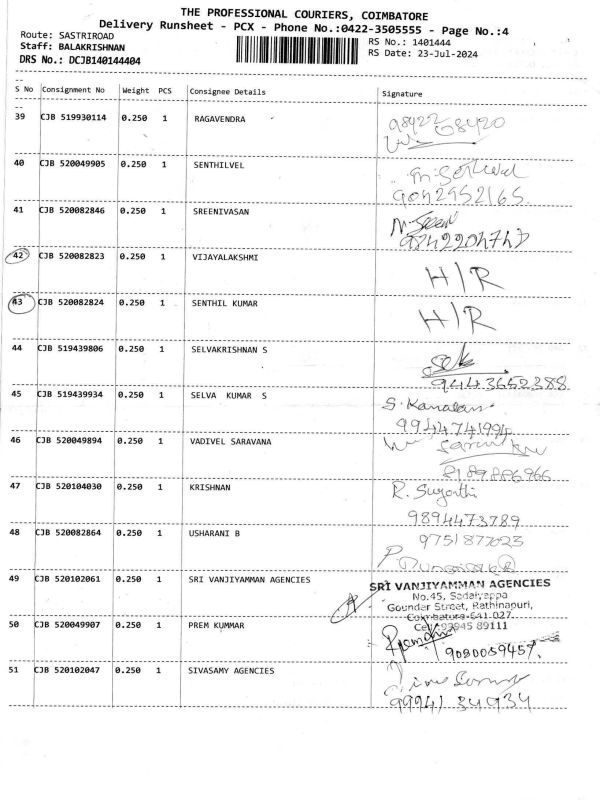 THE PROFESSIONAL COURIERS, COIMBATORE
Delivery Runsheet - PCX - Phone No.:0422-3505555 - Page No.:4
Route: SASTRIROAD
RS No.: 1401444
Staff: BALAKRISHNAN
RS Date: 23-Jul-2024
DRS No.: DCJB140144404
S No Consignment No Weight PCS Consignee Details Signature
39 CJB 519930114 0.250 1 RAGAVENDRA
98422 68420
40 CJB 520049905 0.250 1 SENTHILVEL
9042952165
41 CJB 520082846 0.250 1 SREENIVASAN
N. Sreeni
42 CJB 520082823 0.250 1 VIJAYALAKSHMI
H/R
43 CJB 520082824 0.250 1 SENTHIL KUMAR
H/R
44 CJB 519439806 0.250 1 SELVAKRISHNAN S
9443652388
45 CJB 519439934 0.250 1 SELVA KUMAR S
9944741994
46 CJB 520049894 0.250 1 VADIVEL SARAVANA
8189886966
47 CJB 520104030 0.250 1 KRISHNAN
R. Suganthi
9894473789
48 CJB 520082864 0.250 1 USHARANI B
9751877023
49 CJB 520102061 0.250 1 SRI VANJIYAMMAN AGENCIES
SRI VANJIYAMMAN AGENCIES
No.45, Sadaiyappa
Gounder Street, Rathinapuri,
Coimbatore-641 027.
Cell: 93945 89111
50 CJB 520049907 0.250 1 PREM KUMMAR
9080059457.
51 CJB 520102047 0.250 1 SIVASAMY AGENCIES
99941 34934